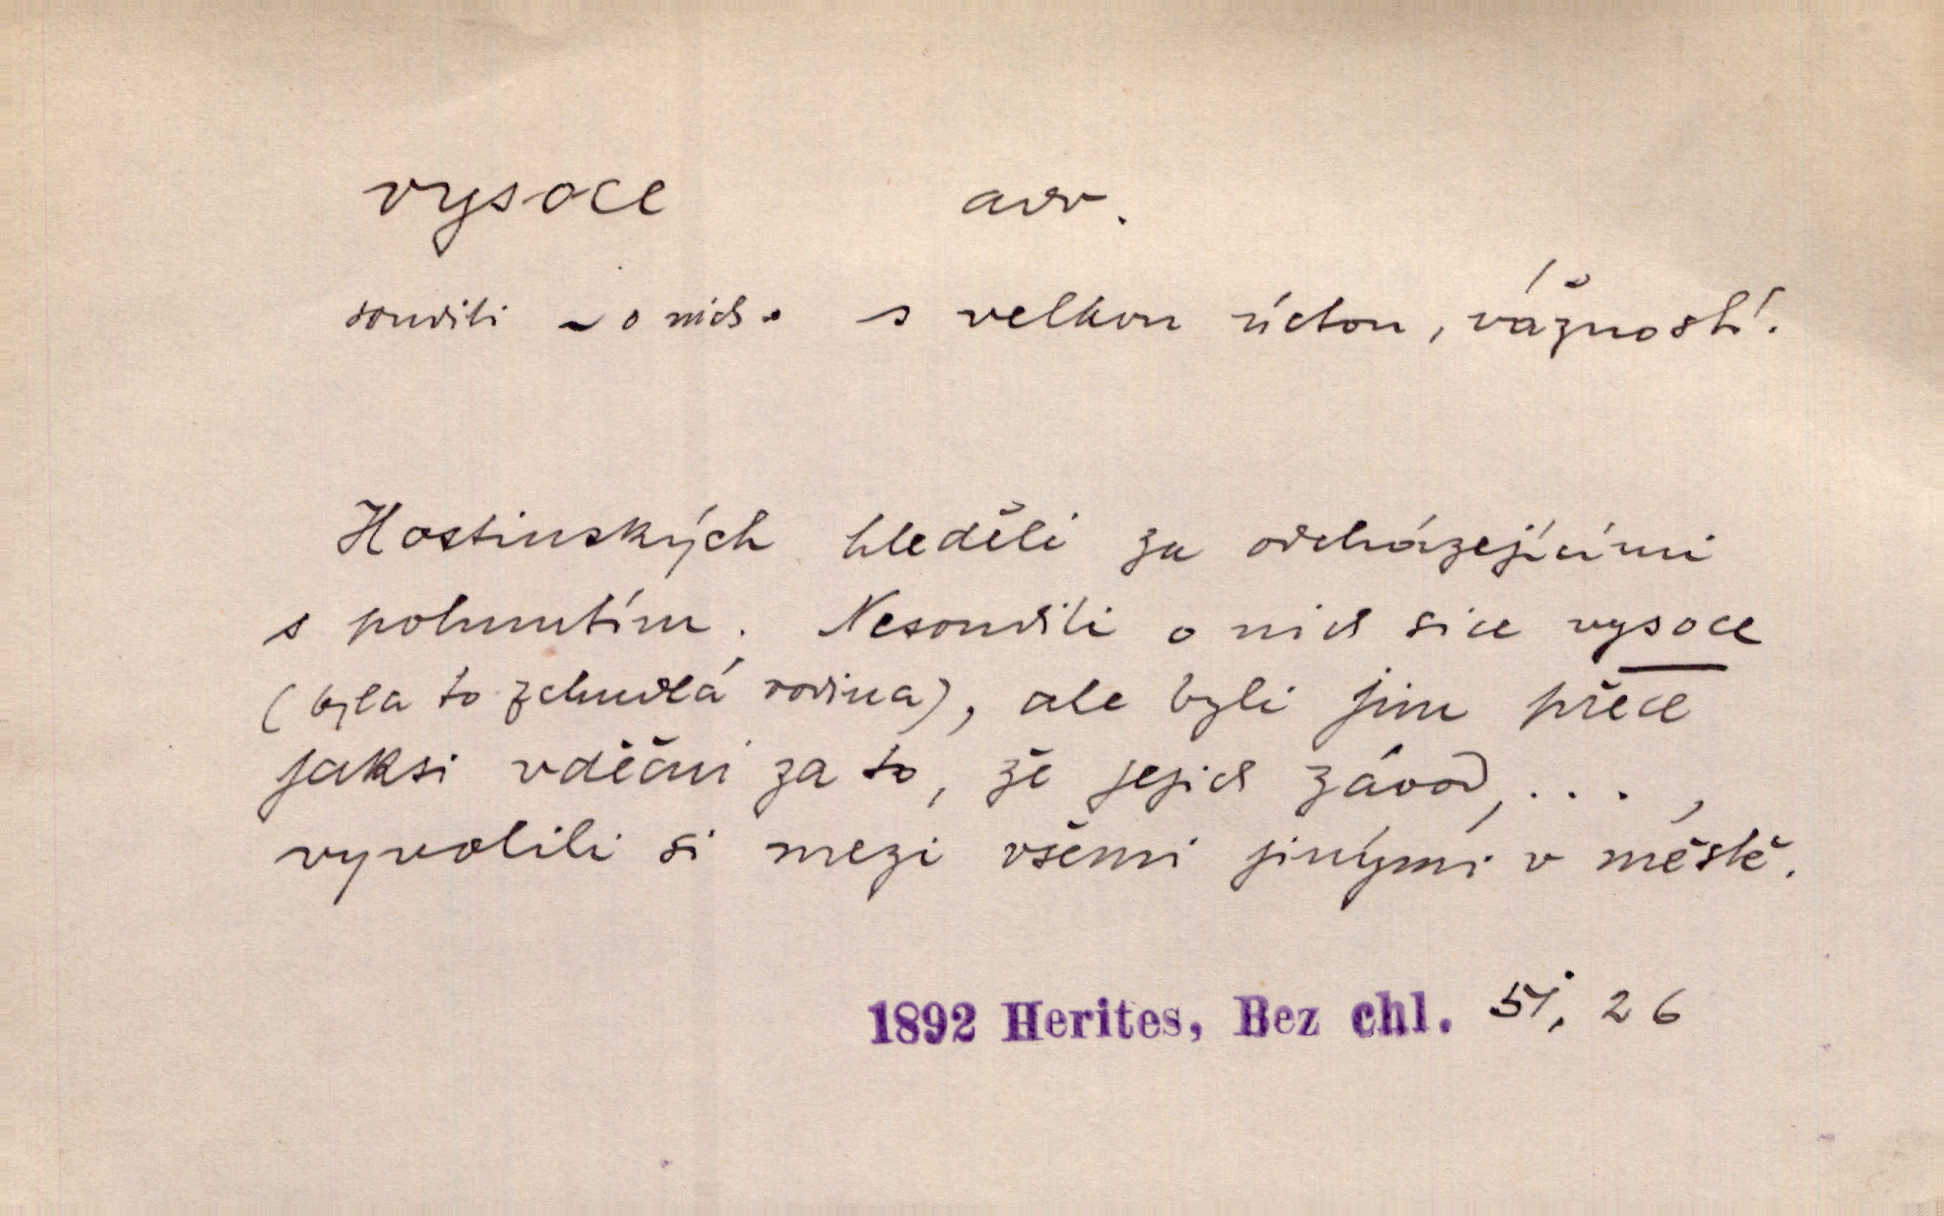 vysoce adv.
soudili ~ o nich. s velkou úctou, vážností.
Hostinských hleděli za odcházejícími
s pohnutím. Nesoudili o nich sice vysoce
(byla to zchudlá rodina), ale byli jim přece
jaksi vděčni za to, že jejich závod, ...,
vyvolili si mezi všemi jinými v městě.
1892 Herites, Bez chl. 26